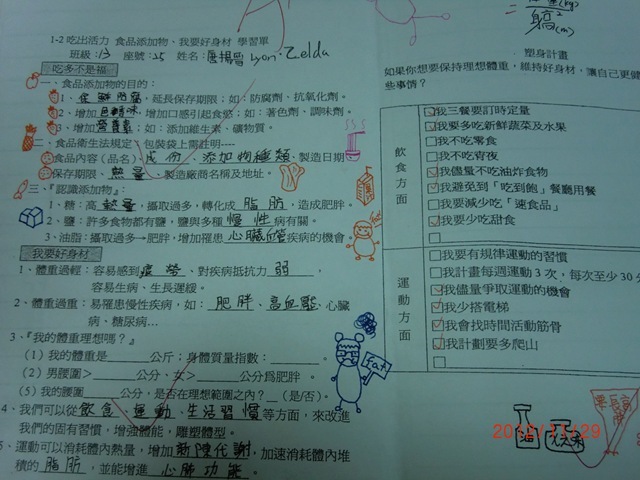 1-2 吃出活力 食品添加物、我要好身材 學習單
班級：13 座號：25 姓名：唐揚曾 Lyon. Zelda
吃多不是福
一、食品添加物的目的：
1、保鮮防腐，延長保存期限；如：防腐劑、抗氧化劑。
2、增加色香味，增加口感引起食慾；如：著色劑、調味劑。
3、增加營養素；如：添加維生素、礦物質。
二、食品衛生法規定，包裝袋上需註明----
食品內容(品名)、成份、添加物種類、製造日期
保存期限、熱量、製造廠商名稱及地址。
三、『認識添加物』：
1、糖：高熱量，攝取過多，轉化成脂肪，造成肥胖。
2、鹽：許多食物都有鹽，鹽與多種慢性病有關。
3、油脂：攝取過多→肥胖，增加罹患心臟血管疾病的機會。
我要好身材
1、體重過輕：容易感到疲勞、對疾病抵抗力弱，
容易生病、生長遲緩。
2、體重過重：易罹患慢性疾病，如：肥胖、高血壓、心臟
病、糖尿病…
3、『我的體重理想嗎？』
(1) 我的體重是 公斤；身體質量指數： 。
(2) 男腰圍> 公分、女> 公分為肥胖。
(5) 我的腰圍 公分，是否在理想範圍之內？ (是/否)。
4、我們可以從飲食、運動、生活習慣等方面，來改進
我們的固有習慣，增強體能，雕塑體型。
5、運動可以消耗體內熱量，增加新陳代謝，加速消耗體內堆
積的脂肪，並能增進心肺功能。
Fat
= 體重(kg)
身高²(m)
塑身計畫
如果你想要保持理想體重，維持好身材，讓自己更健
些事情？
飲食方面
我三餐要訂時定量
我要多吃新鮮蔬菜及水果
我不吃零食
我不吃宵夜
我儘量不吃油炸食物
我避免到「吃到飽」餐廳用餐
我要減少吃「速食品」
我要少吃甜食
運動方面
我要有規律運動的習慣
我計畫每週運動 3 次，每次至少 30 分
我儘量爭取運動的機會
我少搭電梯
我會找時間活動筋骨
我計劃要多爬山
油
2012/11/29